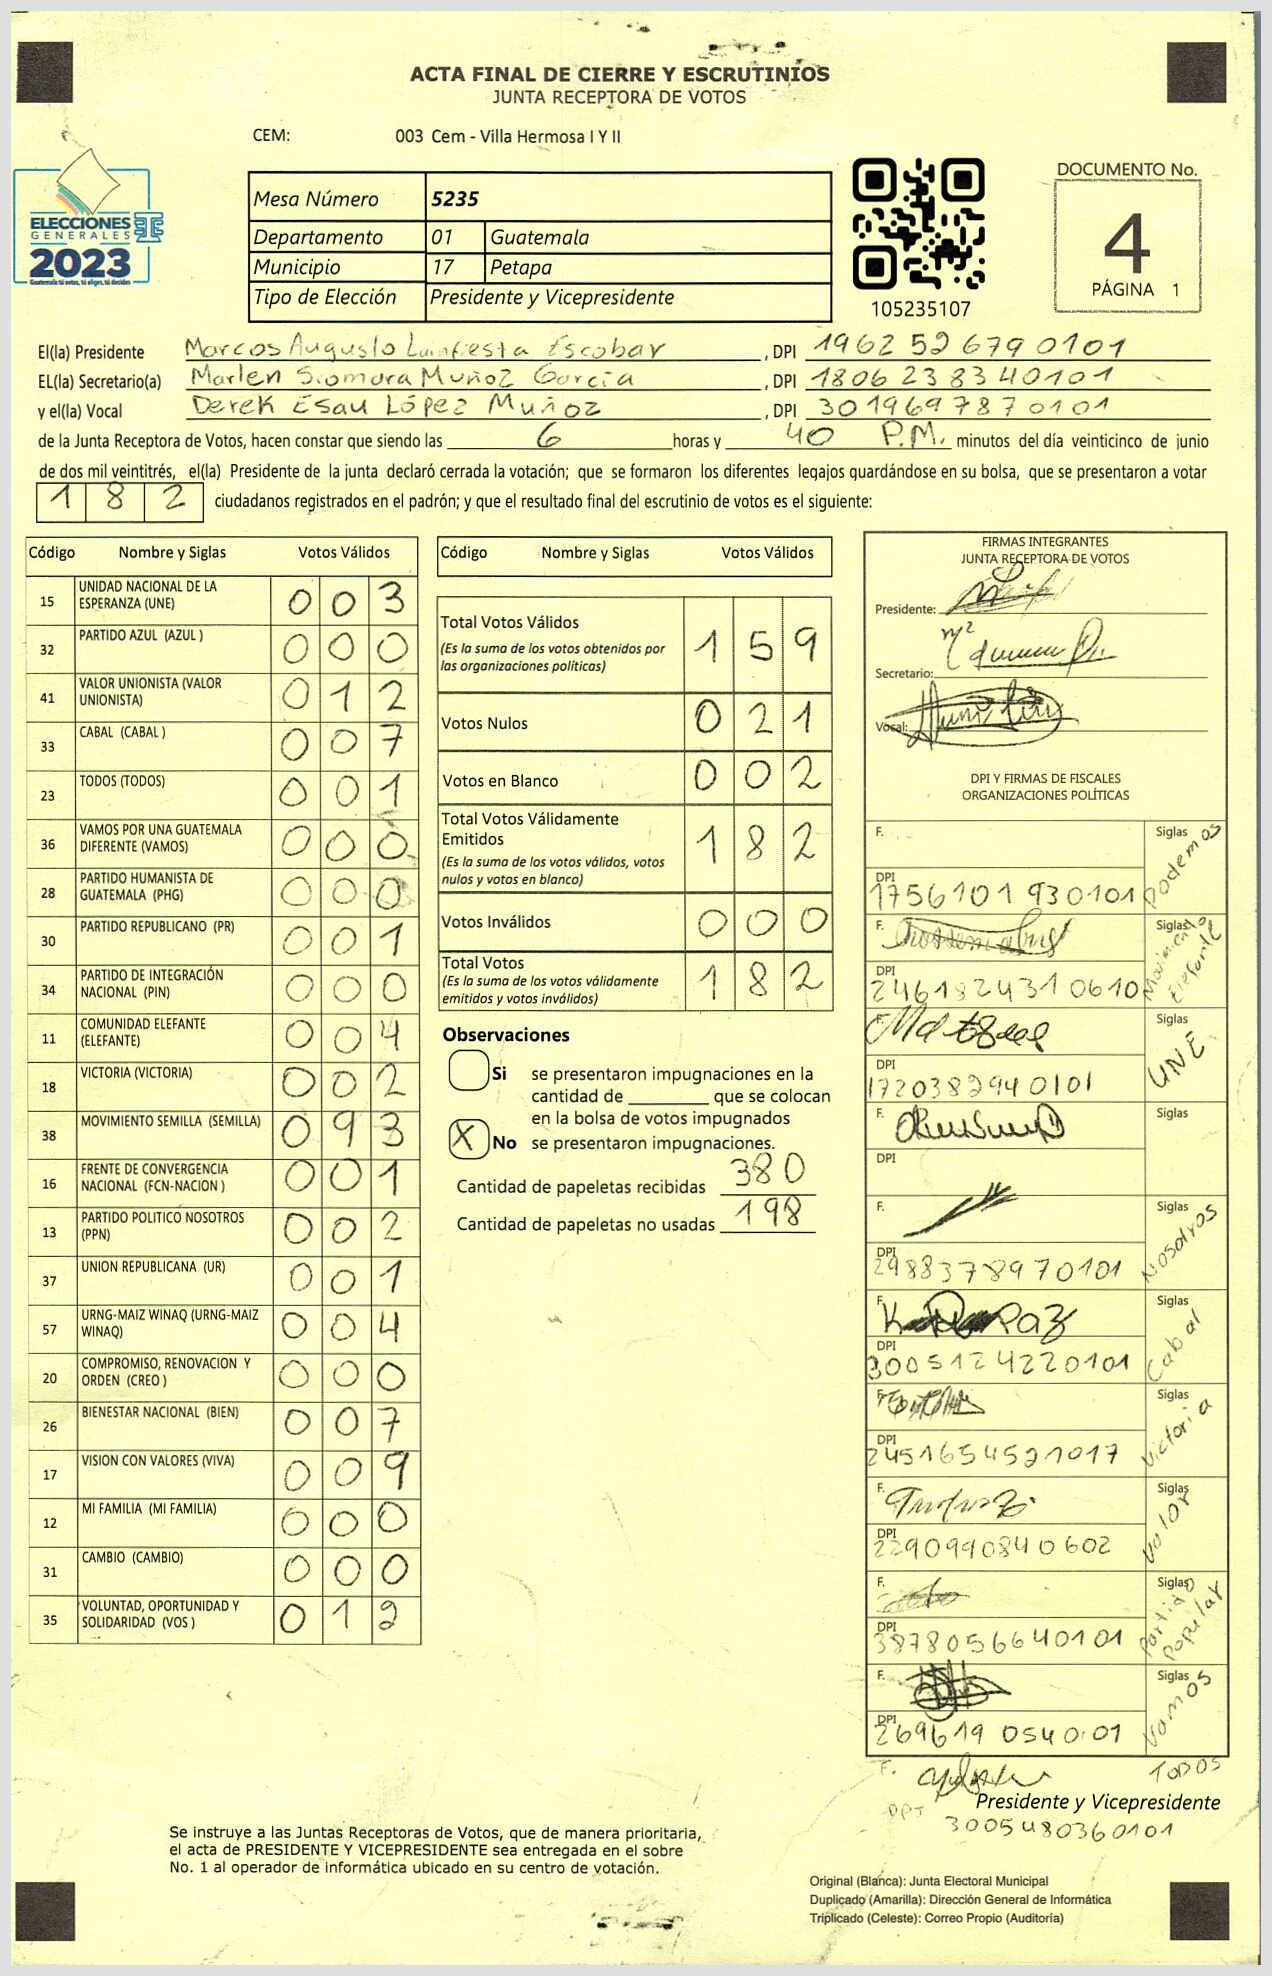 ACTA FINAL DE CIERRE Y ESCRUTINIOS
JUNTA RECEPTORA DE VOTOS
CEM: 003 Cem - Villa Hermosa I Y II
ELECCIONES
GENERALES
2023
Guatemala tú votas, tú eliges, tú decides
Mesa Número 5235
Departamento 01 Guatemala
Municipio 17 Petapa
Tipo de Elección Presidente y Vicepresidente
105235107
DOCUMENTO No.
4
PÁGINA 1
El(la) Presidente Marcos Augusto Lainfiesta Escobar, DPI 1962526790101
EL(la) Secretario(a) Marlen Siomara Muñoz García, DPI 1806238340101
y el(la) Vocal Derek Esau López Muñoz, DPI 3019697870101
de la Junta Receptora de Votos, hacen constar que siendo las 6 horas y 40 P.M. minutos del día veinticinco de junio
de dos mil veintitrés, el(la) Presidente de la junta declaró cerrada la votación; que se formaron los diferentes legajos guardándose en su bolsa, que se presentaron a votar
182 ciudadanos registrados en el padrón; y que el resultado final del escrutinio de votos es el siguiente:
Código Nombre y Siglas Votos Válidos
15 UNIDAD NACIONAL DE LA ESPERANZA (UNE) 003
32 PARTIDO AZUL (AZUL ) 000
41 VALOR UNIONISTA (VALOR UNIONISTA) 012
33 CABAL (CABAL ) 007
23 TODOS (TODOS) 001
36 VAMOS POR UNA GUATEMALA DIFERENTE (VAMOS) 000
28 PARTIDO HUMANISTA DE GUATEMALA (PHG) 000
30 PARTIDO REPUBLICANO (PR) 001
34 PARTIDO DE INTEGRACIÓN NACIONAL (PIN) 000
11 COMUNIDAD ELEFANTE (ELEFANTE) 004
18 VICTORIA (VICTORIA) 002
38 MOVIMIENTO SEMILLA (SEMILLA) 093
16 FRENTE DE CONVERGENCIA NACIONAL (FCN-NACION ) 001
13 PARTIDO POLITICO NOSOTROS (PPN) 002
37 UNION REPUBLICANA (UR) 001
57 URNG-MAIZ WINAQ (URNG-MAIZ WINAQ) 004
20 COMPROMISO, RENOVACION Y ORDEN (CREO ) 000
26 BIENESTAR NACIONAL (BIEN) 007
17 VISION CON VALORES (VIVA) 009
12 MI FAMILIA (MI FAMILIA) 000
31 CAMBIO (CAMBIO) 000
35 VOLUNTAD, OPORTUNIDAD Y SOLIDARIDAD (VOS ) 012
Código Nombre y Siglas Votos Válidos
Total Votos Válidos 159
(Es la suma de los votos obtenidos por
las organizaciones políticas)
Votos Nulos 021
Votos en Blanco 002
Total Votos Válidamente
Emitidos 182
(Es la suma de los votos válidos, votos
nulos y votos en blanco)
Votos Inválidos 000
Total Votos 182
(Es la suma de los votos válidamente
emitidos y votos inválidos)
Observaciones
Si se presentaron impugnaciones en la
cantidad de ________ que se colocan
en la bolsa de votos impugnados
X No se presentaron impugnaciones.
Cantidad de papeletas recibidas 380
Cantidad de papeletas no usadas 198
FIRMAS INTEGRANTES
JUNTA RECEPTORA DE VOTOS
Presidente:
Secretario:
Vocal:
DPI Y FIRMAS DE FISCALES
ORGANIZACIONES POLÍTICAS
F. Siglas Podemos
DPI 1756101930101
F. Siglas Movimiento Elefante
DPI 2461824310610
F. Siglas UNE
DPI 1720382940101
F. Siglas
DPI
F. Siglas Nosotros
DPI 2988378970101
F. Paz Siglas Cabal
DPI 3005124220101
F. Siglas Victoria
DPI 2451654521017
F. Siglas Valor
DPI 2290990840602
F. Siglas Partido Popular
DPI 3878056640101
F. Siglas Vamos
DPI
F. TODOS
Presidente y Vicepresidente
DPI 3005480360101
Se instruye a las Juntas Receptoras de Votos, que de manera prioritaria,
el acta de PRESIDENTE Y VICEPRESIDENTE sea entregada en el sobre
No. 1 al operador de informática ubicado en su centro de votación.
Original (Blanca): Junta Electoral Municipal
Duplicado (Amarilla): Dirección General de Informática
Triplicado (Celeste): Correo Propio (Auditoría)